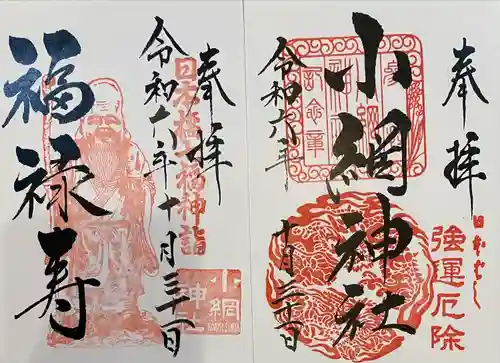 奉拝
日本橋七福神詣
令和六年十月三十一日
福禄寿
小網
神社
奉拝
日本ばし
強運厄除
小網神社
令和六年
十月三十一日